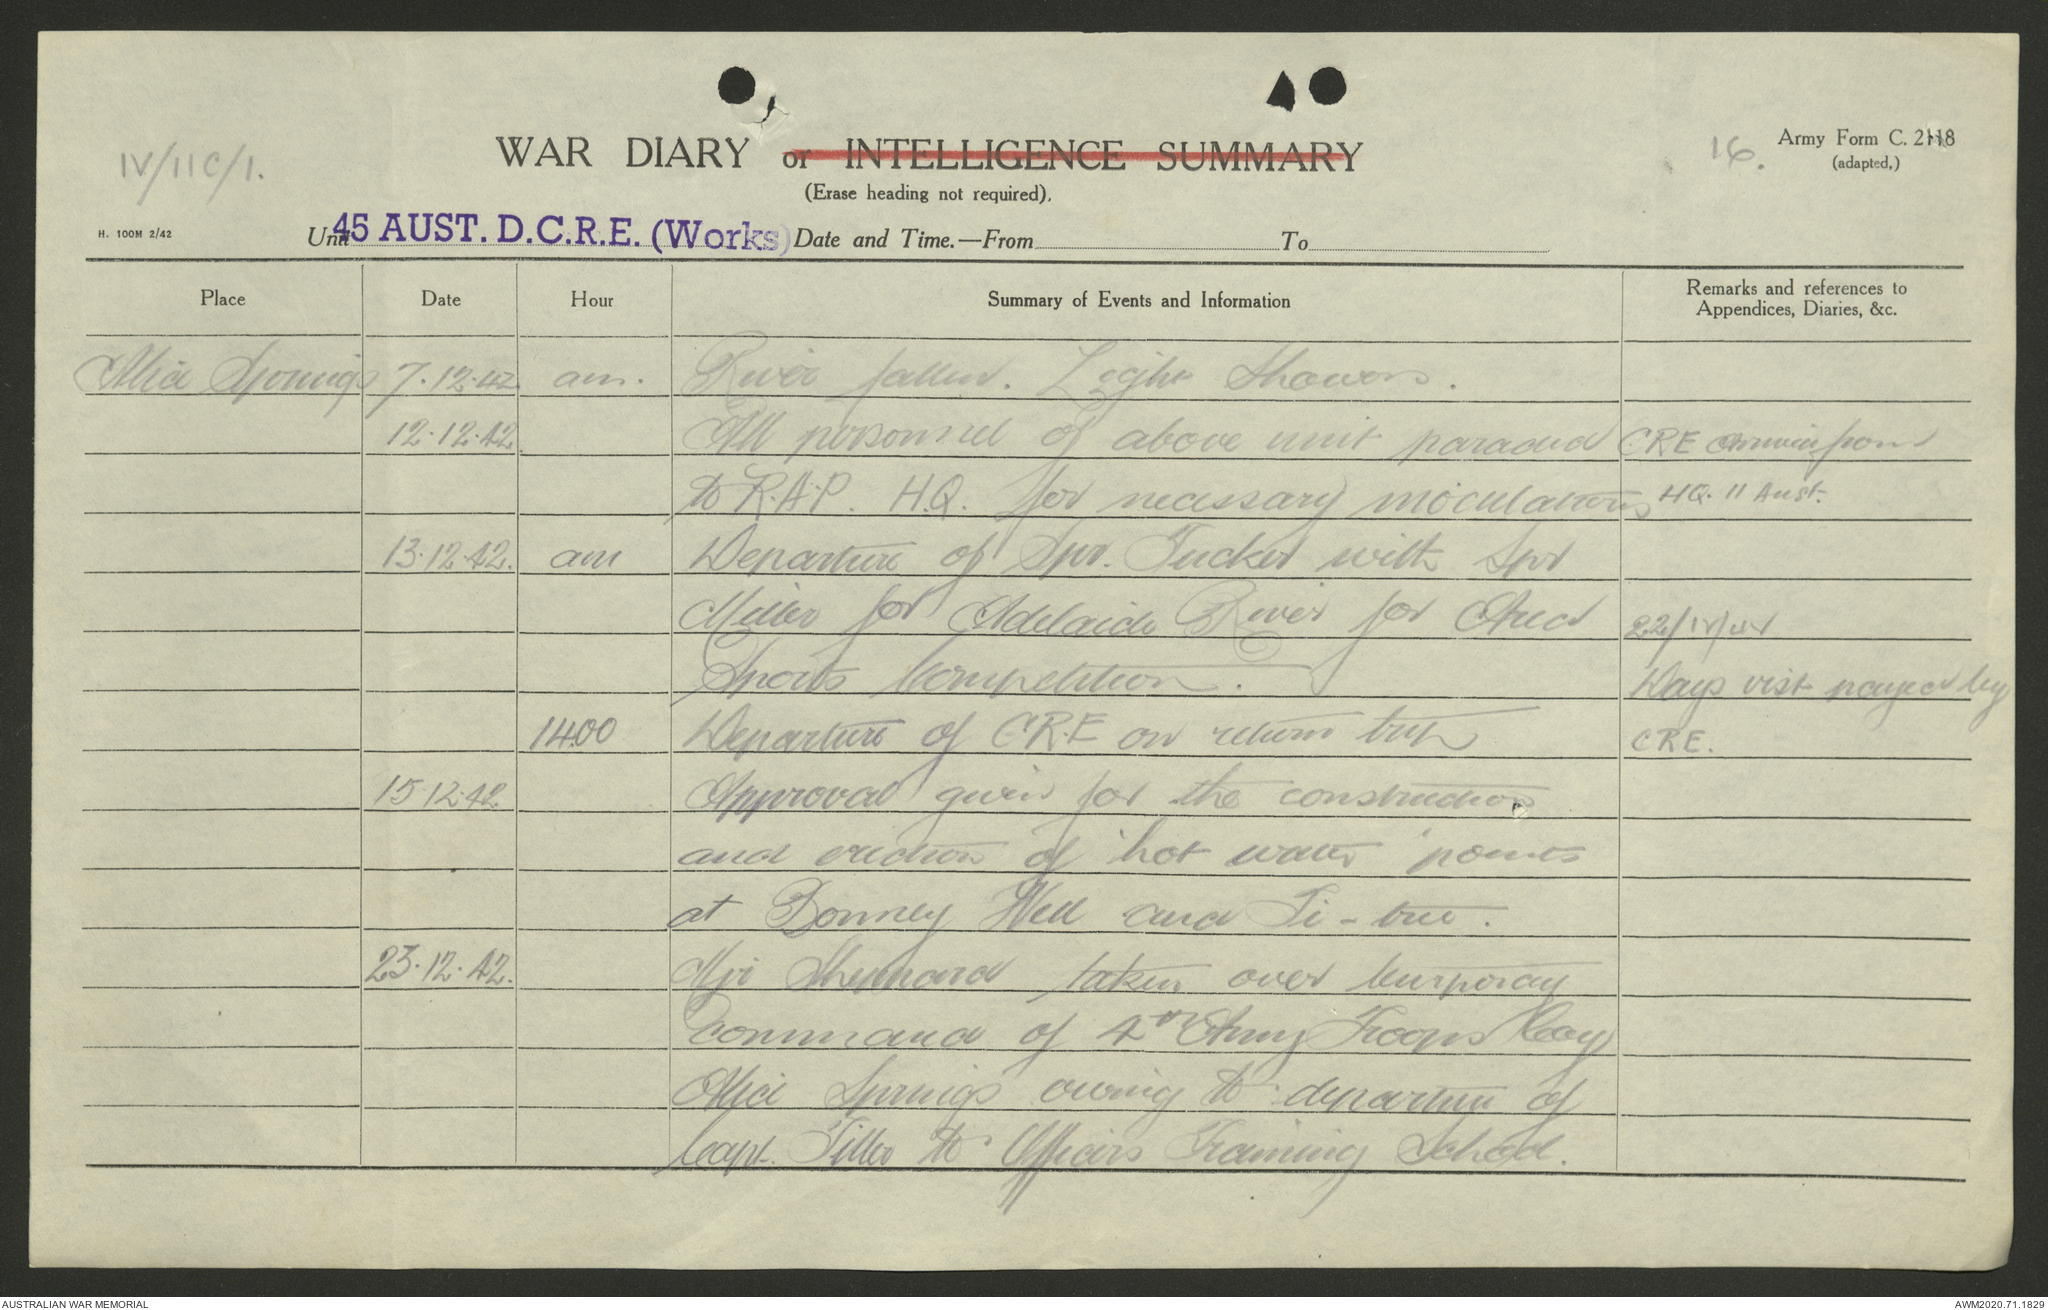 IV/11C/1.
WAR DIARY or INTELLIGENCE SUMMARY
(Erase heading not required).
16.
Army Form C. 2118
(adapted.)
H. 100M 2/42
Unit 45 AUST. D.C.R.E. (Works) Date and Time.—From To
Place Date Hour Summary of Events and Information Remarks and references to Appendices, Diaries, &c.
Alice Springs 7.12.42 am. River fallen. Light Showers.
12.12.42 All personnel of above unit paraded CRE from
to R.A.P. H.Q. for necessary inoculations HQ. 11 Aust.
13.12.42. am Departure of Spr. Tucker with Spr
Miller for Adelaide River for Area
Sports Competition. Days vist payed by
1400 Departure of C.R.E on return trip CRE.
15.12.42 Approval given for the construction
and erection of 'hot water' points
at Bonney Well and Ti-tree.
23.12.42. Mjr Shennard taken over temporary
command of 4th Army Troops Coy
Alice Springs owing to departure of
Capt. Tiller to Officers Training School.
AUSTRALIAN WAR MEMORIAL
AWM2020.71.1829